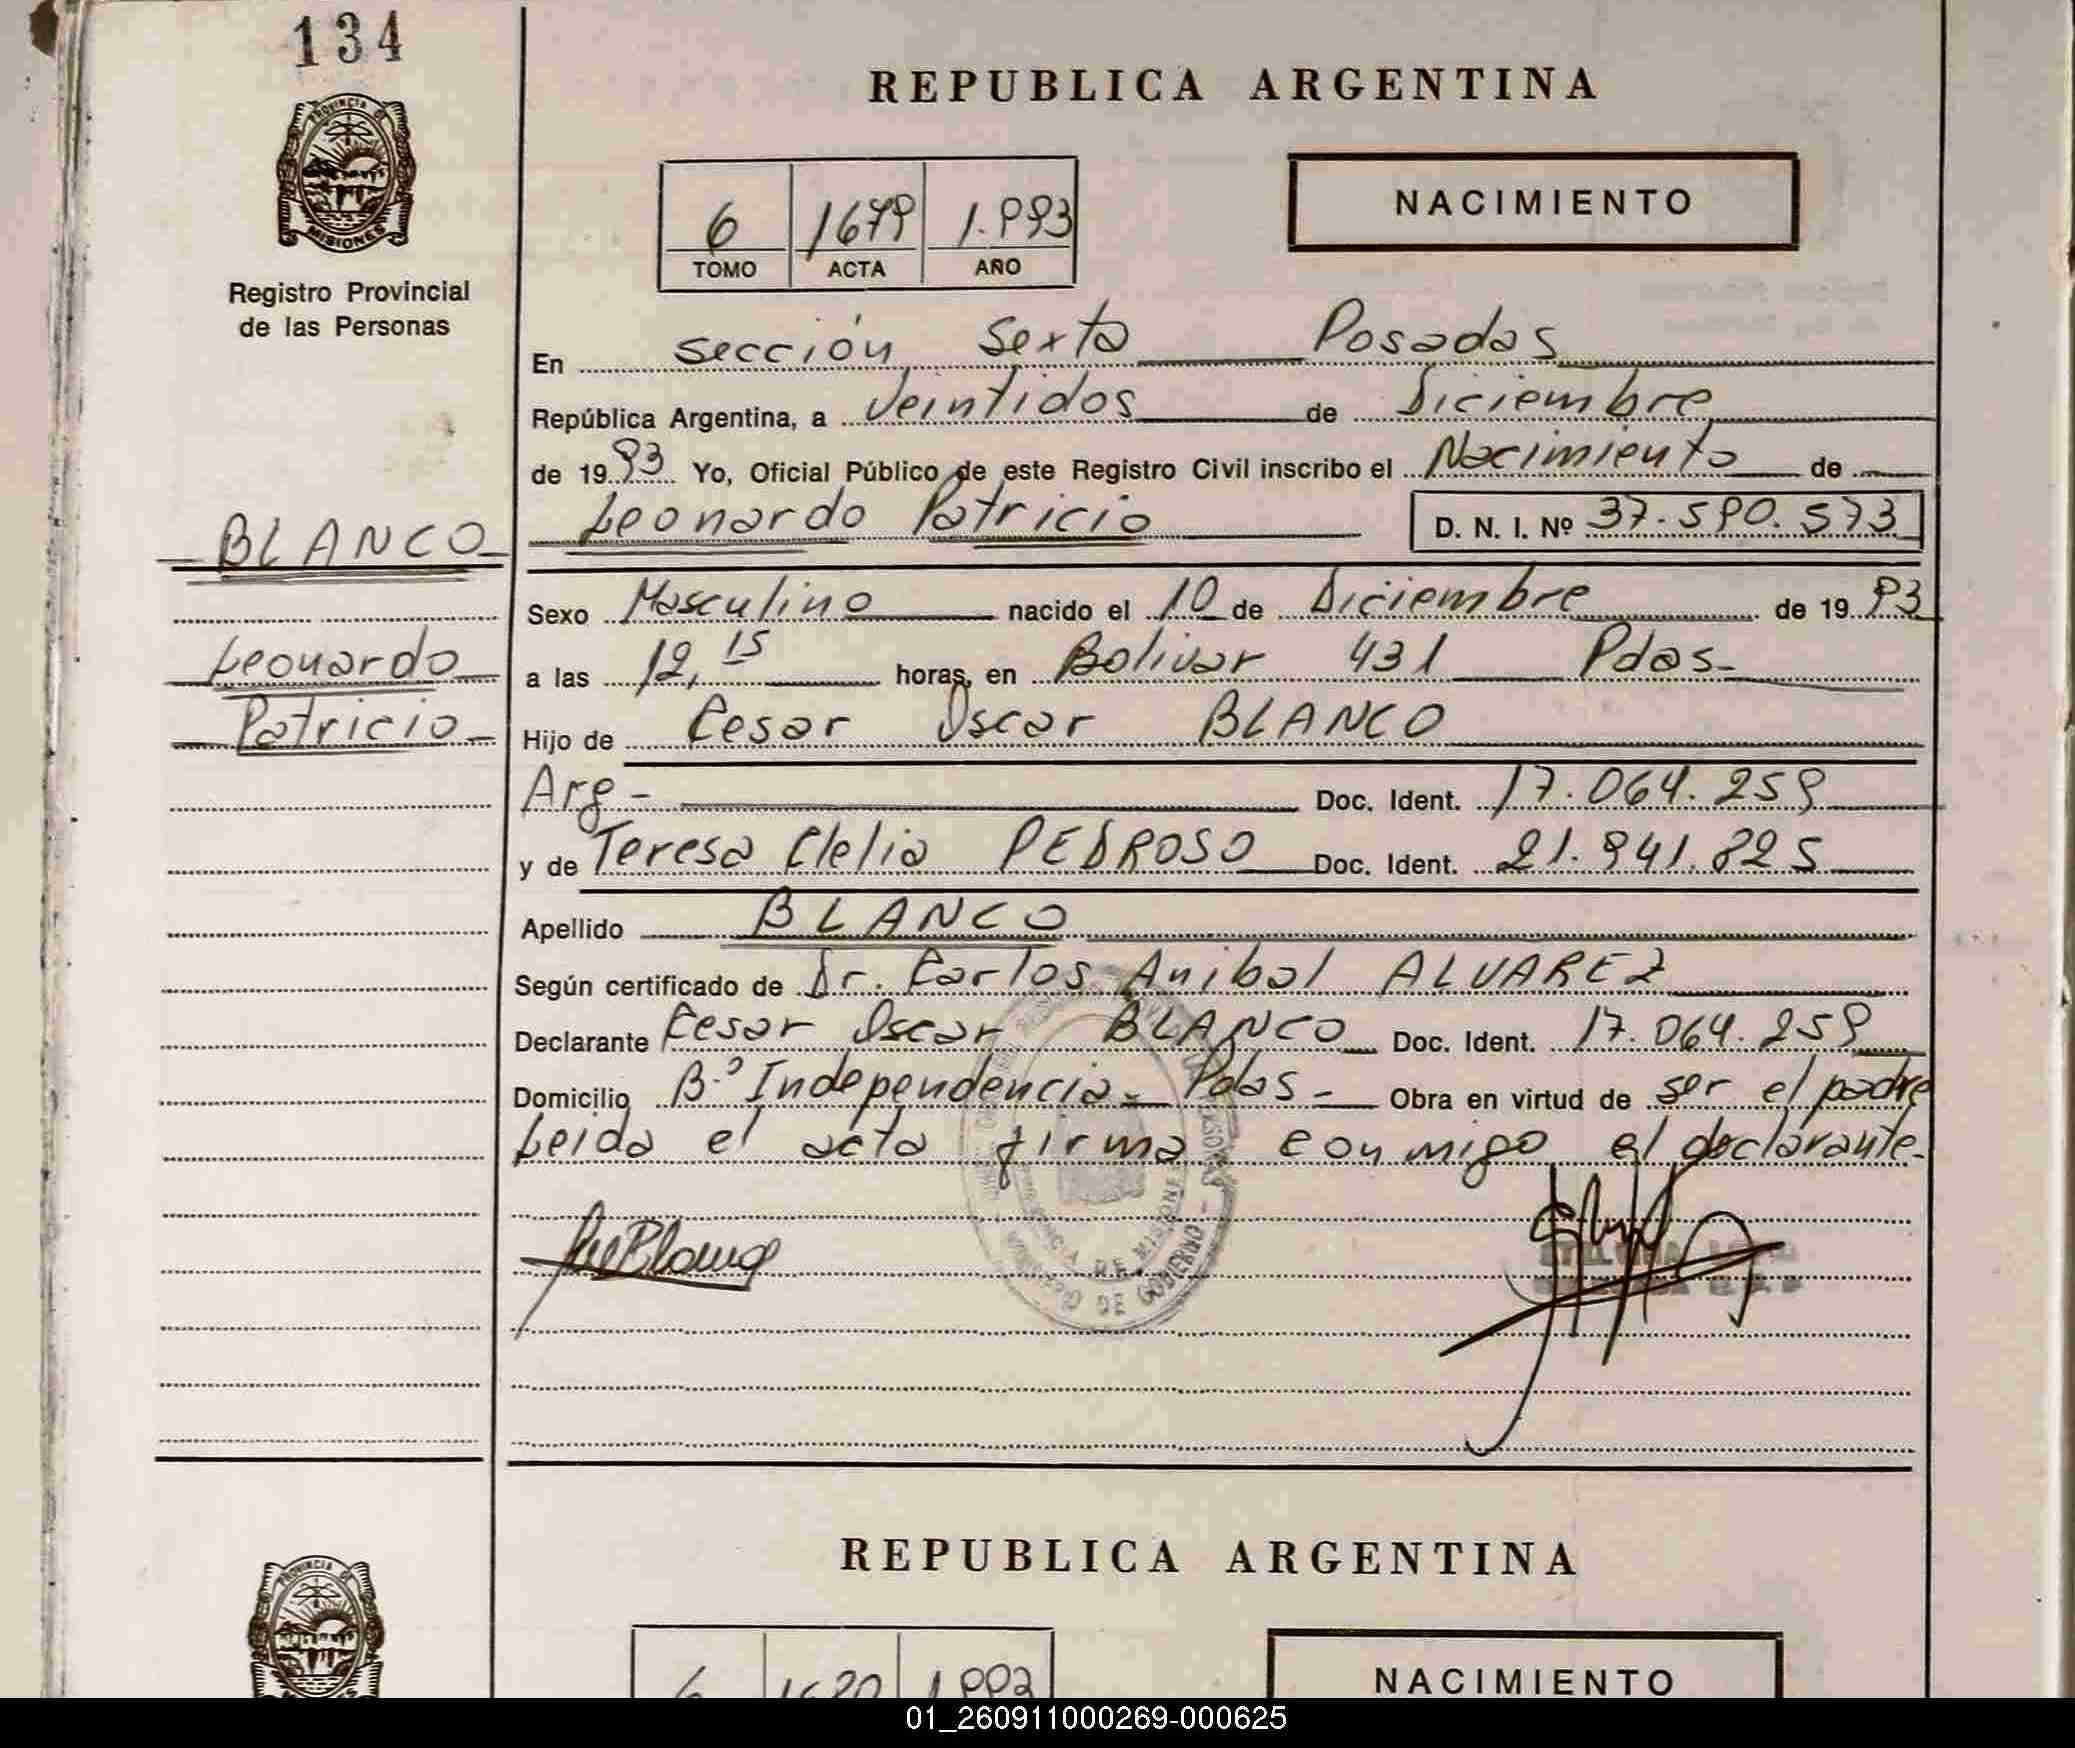 134
PROVINCIA DE
MISIONES
Registro Provincial
de las Personas
REPUBLICA ARGENTINA
6 1679 1.993
TOMO ACTA AÑO
NACIMIENTO
En sección Sexta Posadas
República Argentina, a Veintidos de Diciembre
de 1993 Yo, Oficial Público de este Registro Civil inscribo el Nacimiento de
BLANCO
Leonardo Patricio D. N. I. Nº 37.590.573
Sexo Masculino nacido el 10 de Diciembre de 1993
Leonardo
a las 12,15 horas, en Bolivar 431 Pdas-
Patricio
Hijo de Cesar Oscar BLANCO
Arg- Doc. Ident. 17.064.259
y de Teresa Clelia PEDROSO Doc. Ident. 21.941.825
Apellido BLANCO
Según certificado de Dr. Carlos Anibal ALVAREZ
Declarante Cesar Oscar BLANCO Doc. Ident. 17.064.259
Domicilio B.º Independencia- Pdas- Obra en virtud de ser el padre
Leida el acta firma conmigo el declarante-
DE GOBIERNO
REPUBLICA ARGENTINA
PROVINCIA DE
6 1680 1.993
NACIMIENTO
01_260911000269-000625